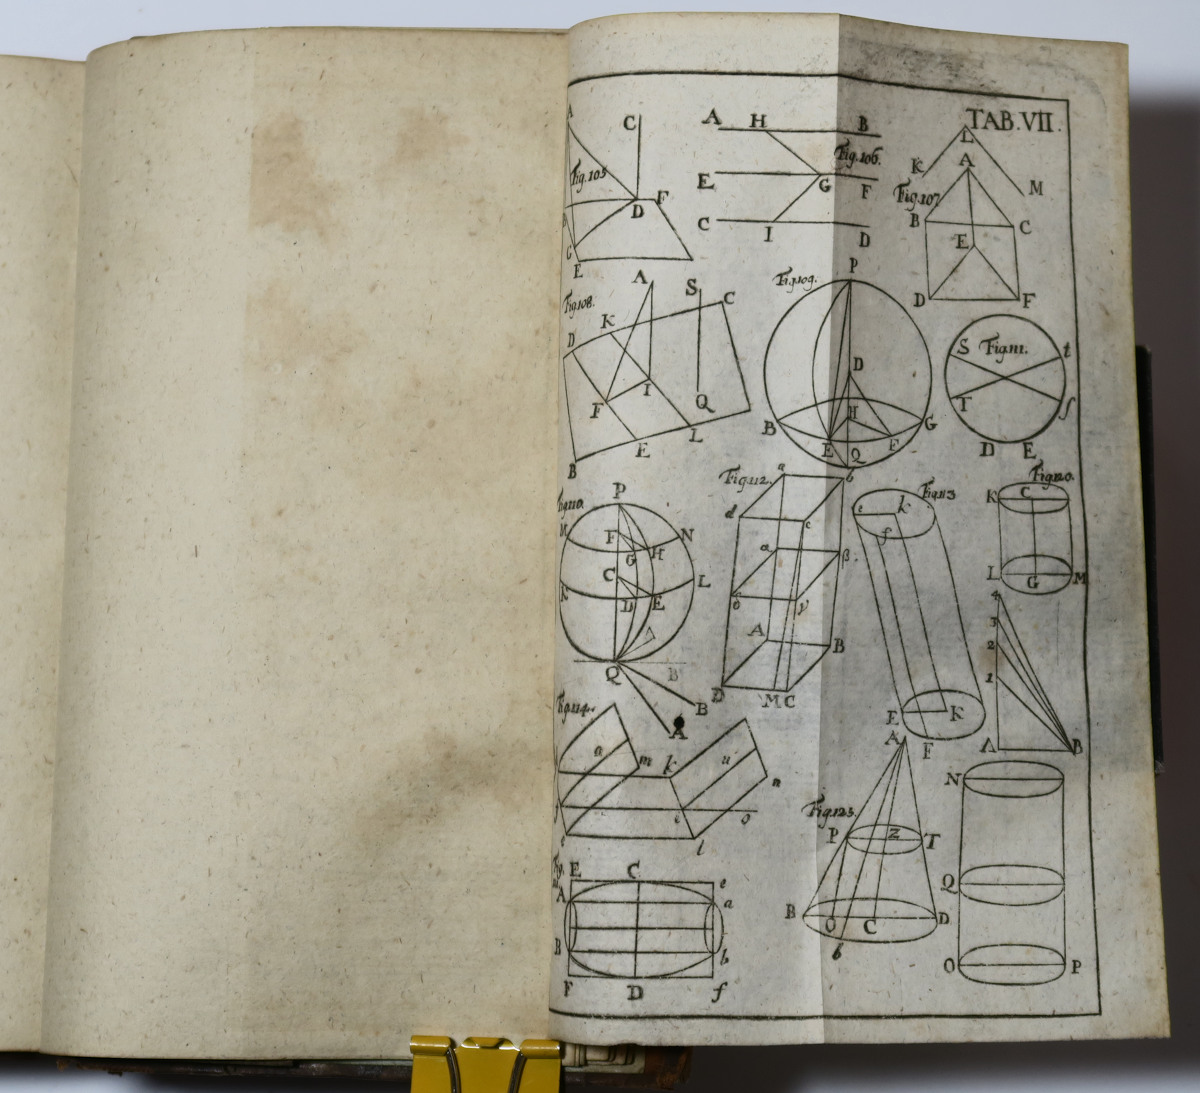 TAB. VII.
A
C
Fig. 105
D
F
G
E
A H B
Fig. 106.
E G F
C I D
L
K
A
M
Fig. 107
B
C
E
D F
Fig. 108.
A S C
K
D
I
F Q
L
E
B
Fig. 109.
P
D
H
B G
E Q F
S Fig. 111. t
T f
D E
Fig. 110.
P
M N
F
G H
C
K L
D E
Q B
B
A
Fig. 112.
a b
d c
α β
δ γ
A B
D M C
Fig. 113
e k
f
E K
F
Fig. 120.
K C
L G M
4
3
2
1
A B
Fig. 114.
a m k u n
e o
l
Fig. 125.
A
P Z T
B O C D
b
N
Q
O P
Fig.
E C e
A a
B b
F D f